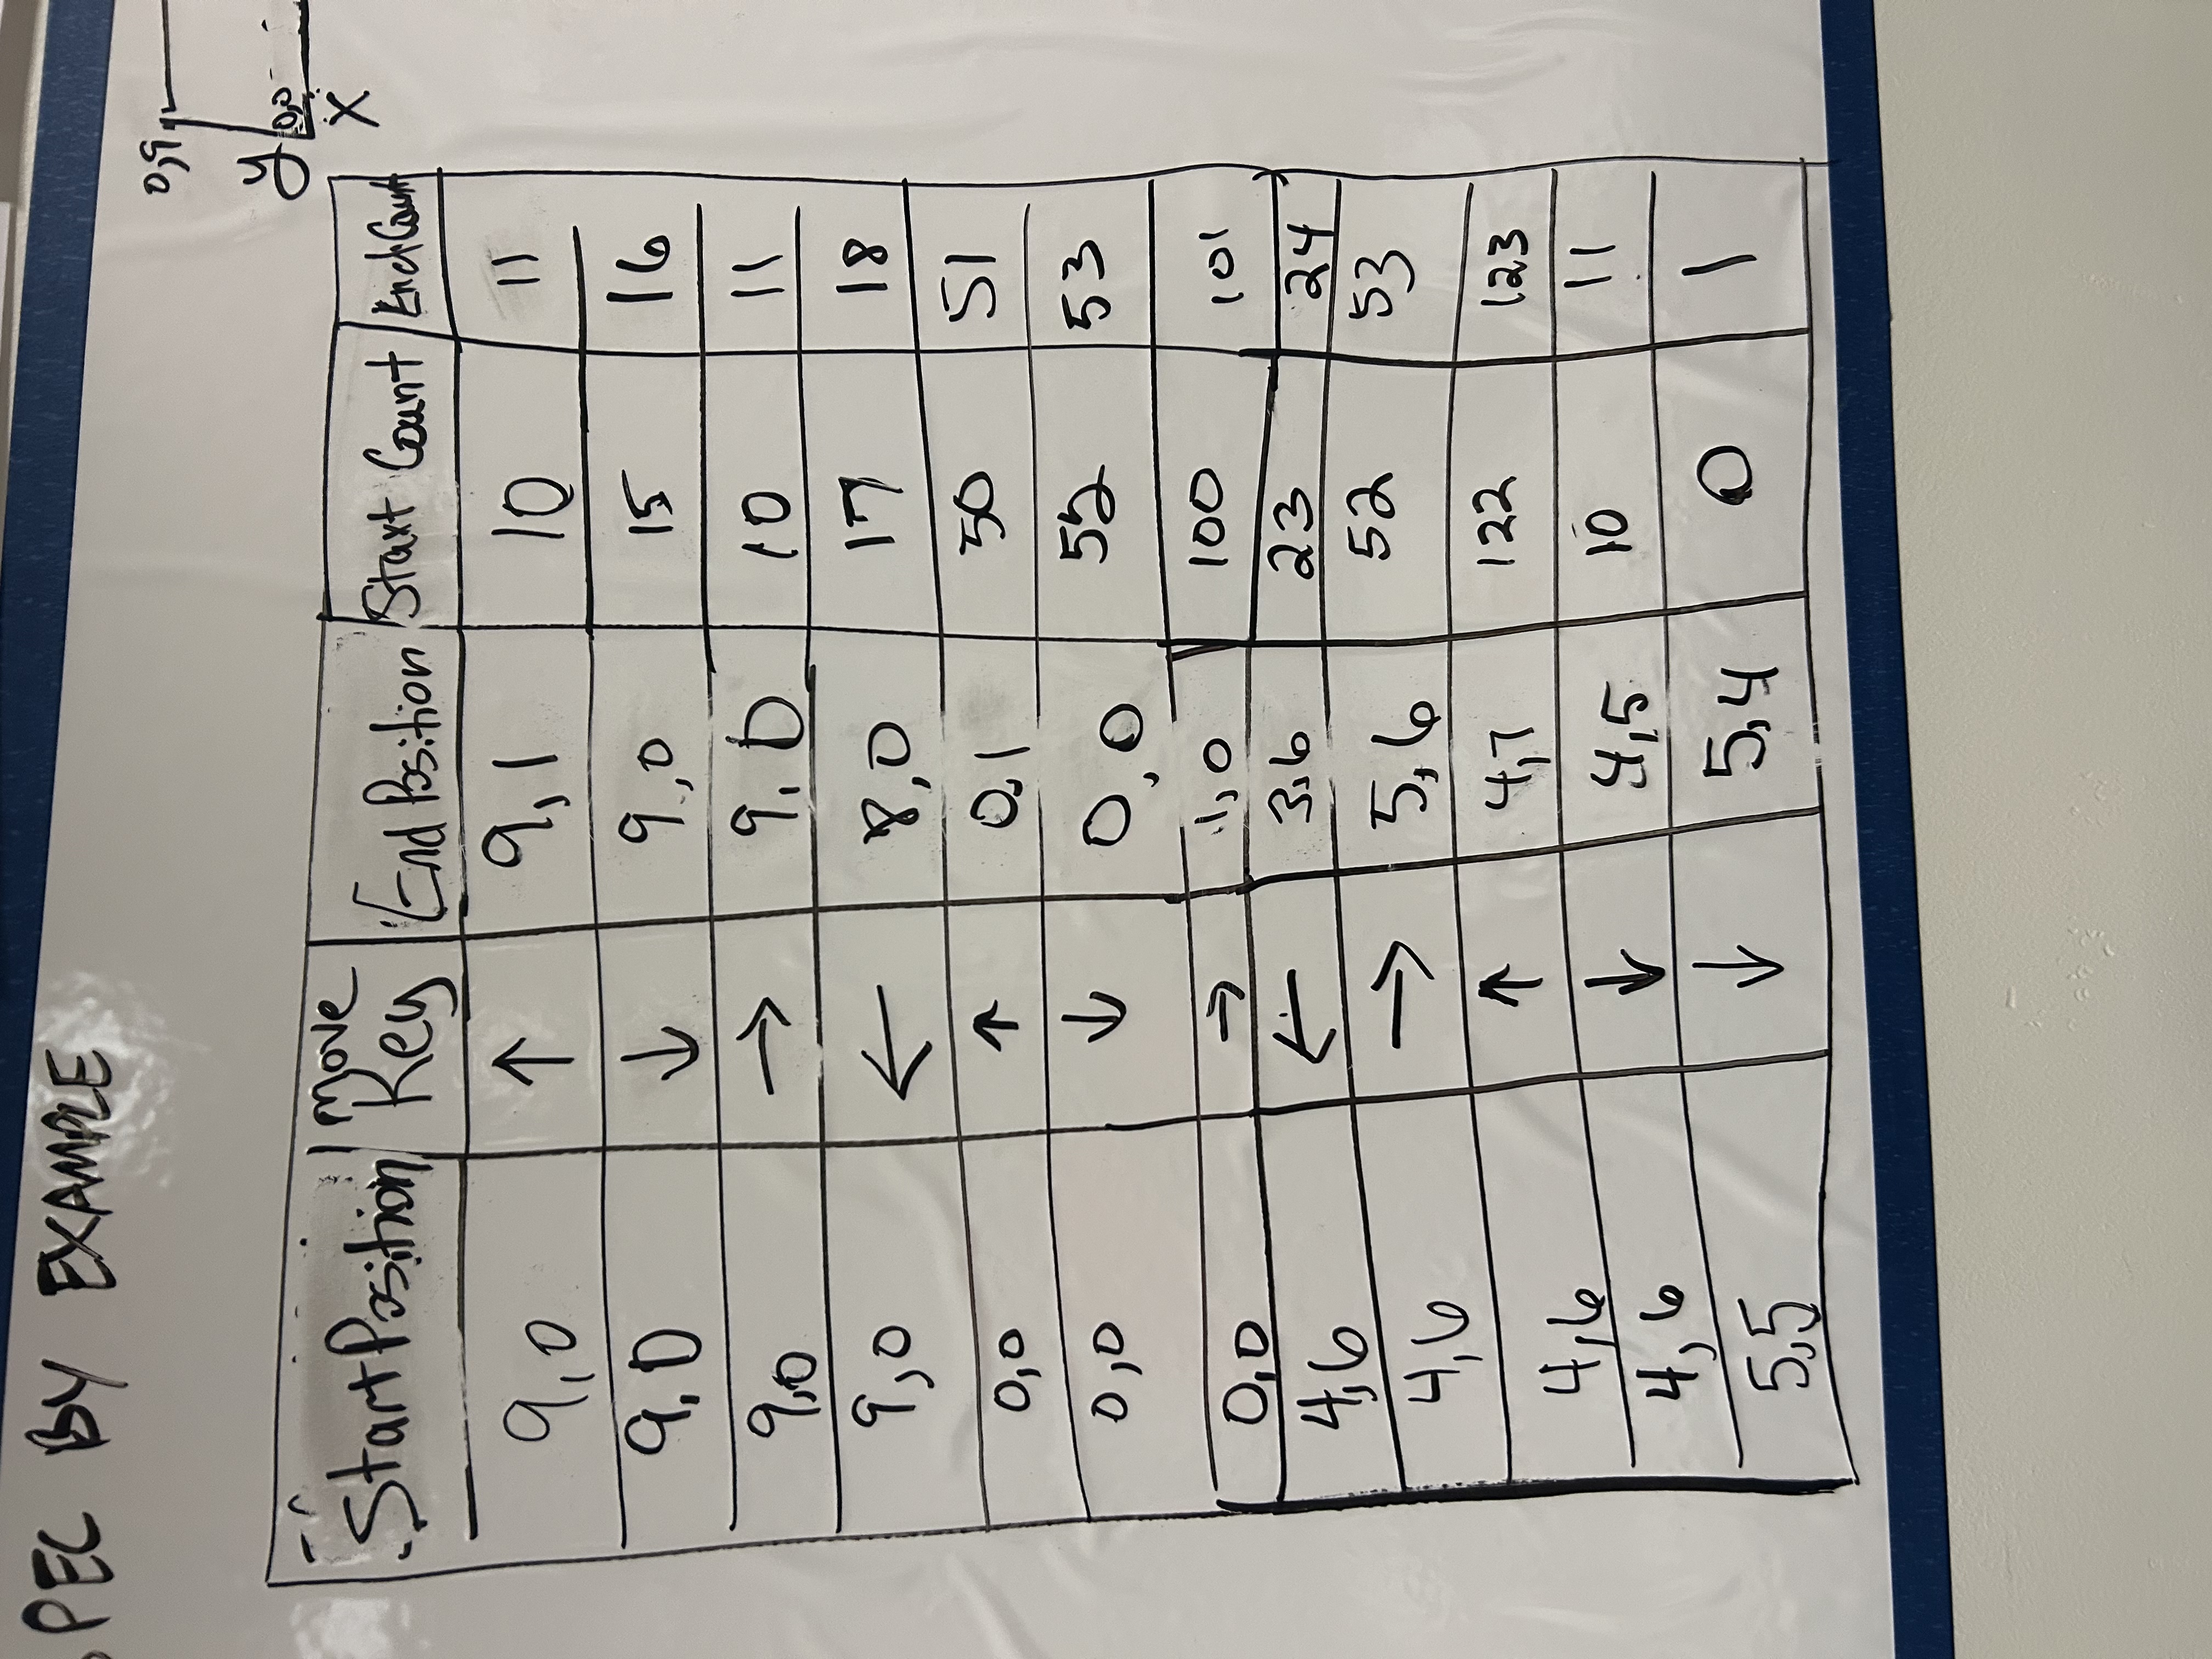 SPEC BY EXAMPLE
0,9
y 0,0
X
Start Position Move Key End Position Start Count End Count
9,0 ↑ 9,1 10 11
9,0 ↓ 9,0 15 16
9,0 → 9,0 10 11
9,0 ← 8,0 17 18
0,0 ↑ 0,1 50 51
0,0 ↓ 0,0 52 53
0,0 → 1,0 100 101
4,6 ← 3,6 23 24
4,6 → 5,6 52 53
4,6 ↑ 4,7 122 123
4,6 ↓ 4,5 10 11
5,5 ↓ 5,4 0 1